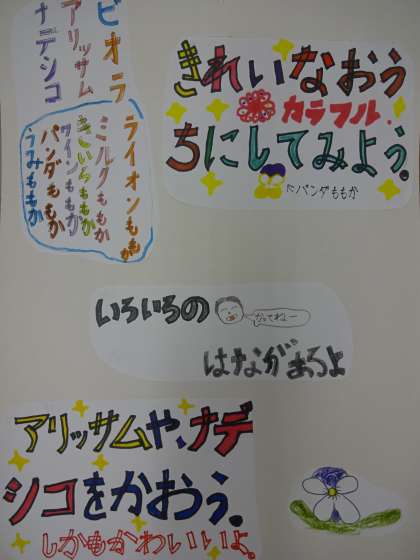 ビオラ
アリッサム
ナデシコ
ライオンももか
ミルクももか
きいろももか
ツインももか
パンダももか
うみももか
きれいなおう
カラフル
ちにしてみよう。
パンダももか
いろいろの
かってねー
はながあるよ
アリッサムや、ナデ
シコをかおう。
しかもかわいいよ。